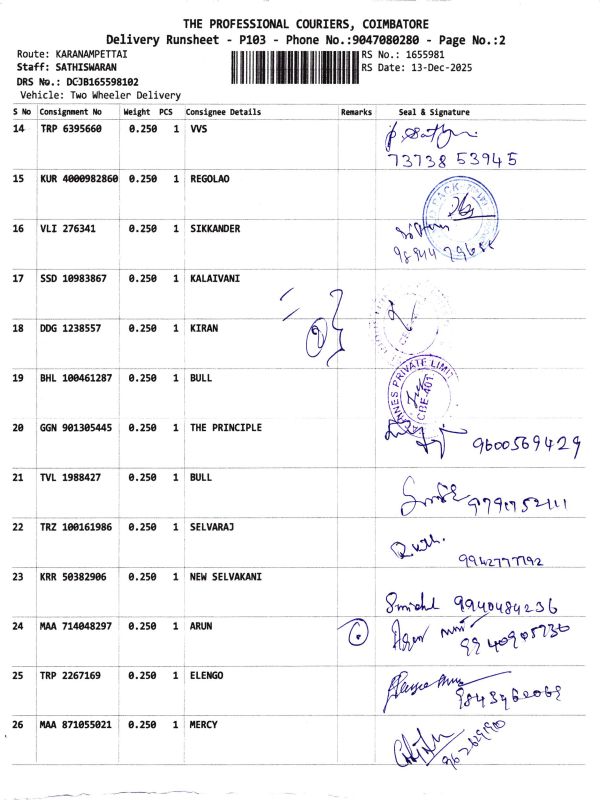 THE PROFESSIONAL COURIERS, COIMBATORE
Delivery Runsheet - P103 - Phone No.:9047080280 - Page No.:2
Route: KARANAMPETTAI
RS No.: 1655981
Staff: SATHISWARAN
RS Date: 13-Dec-2025
DRS No.: DCJB165598102
Vehicle: Two Wheeler Delivery
S No Consignment No Weight PCS Consignee Details Remarks Seal & Signature
14 TRP 6395660 0.250 1 VVS
73738 53945
15 KUR 4000982860 0.250 1 REGOLAO
16 VLI 276341 0.250 1 SIKKANDER
17 SSD 10983867 0.250 1 KALAIVANI
18 DDG 1238557 0.250 1 KIRAN
19 BHL 100461287 0.250 1 BULL
PRIVATE LIMIT
CBE-401
20 GGN 901305445 0.250 1 THE PRINCIPLE
9600569429
21 TVL 1988427 0.250 1 BULL
22 TRZ 100161986 0.250 1 SELVARAJ
9942777192
23 KRR 50382906 0.250 1 NEW SELVAKANI
9940484236
24 MAA 714048297 0.250 1 ARUN
9940905730
25 TRP 2267169 0.250 1 ELENGO
26 MAA 871055021 0.250 1 MERCY